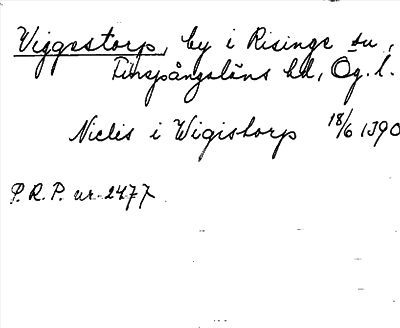 Viggestorp, by i Risinge sn,
Finspångaläns hd, Ög. l.
Niclis i Wigistorp 18/6 1390
P.R.P. nr. 2477